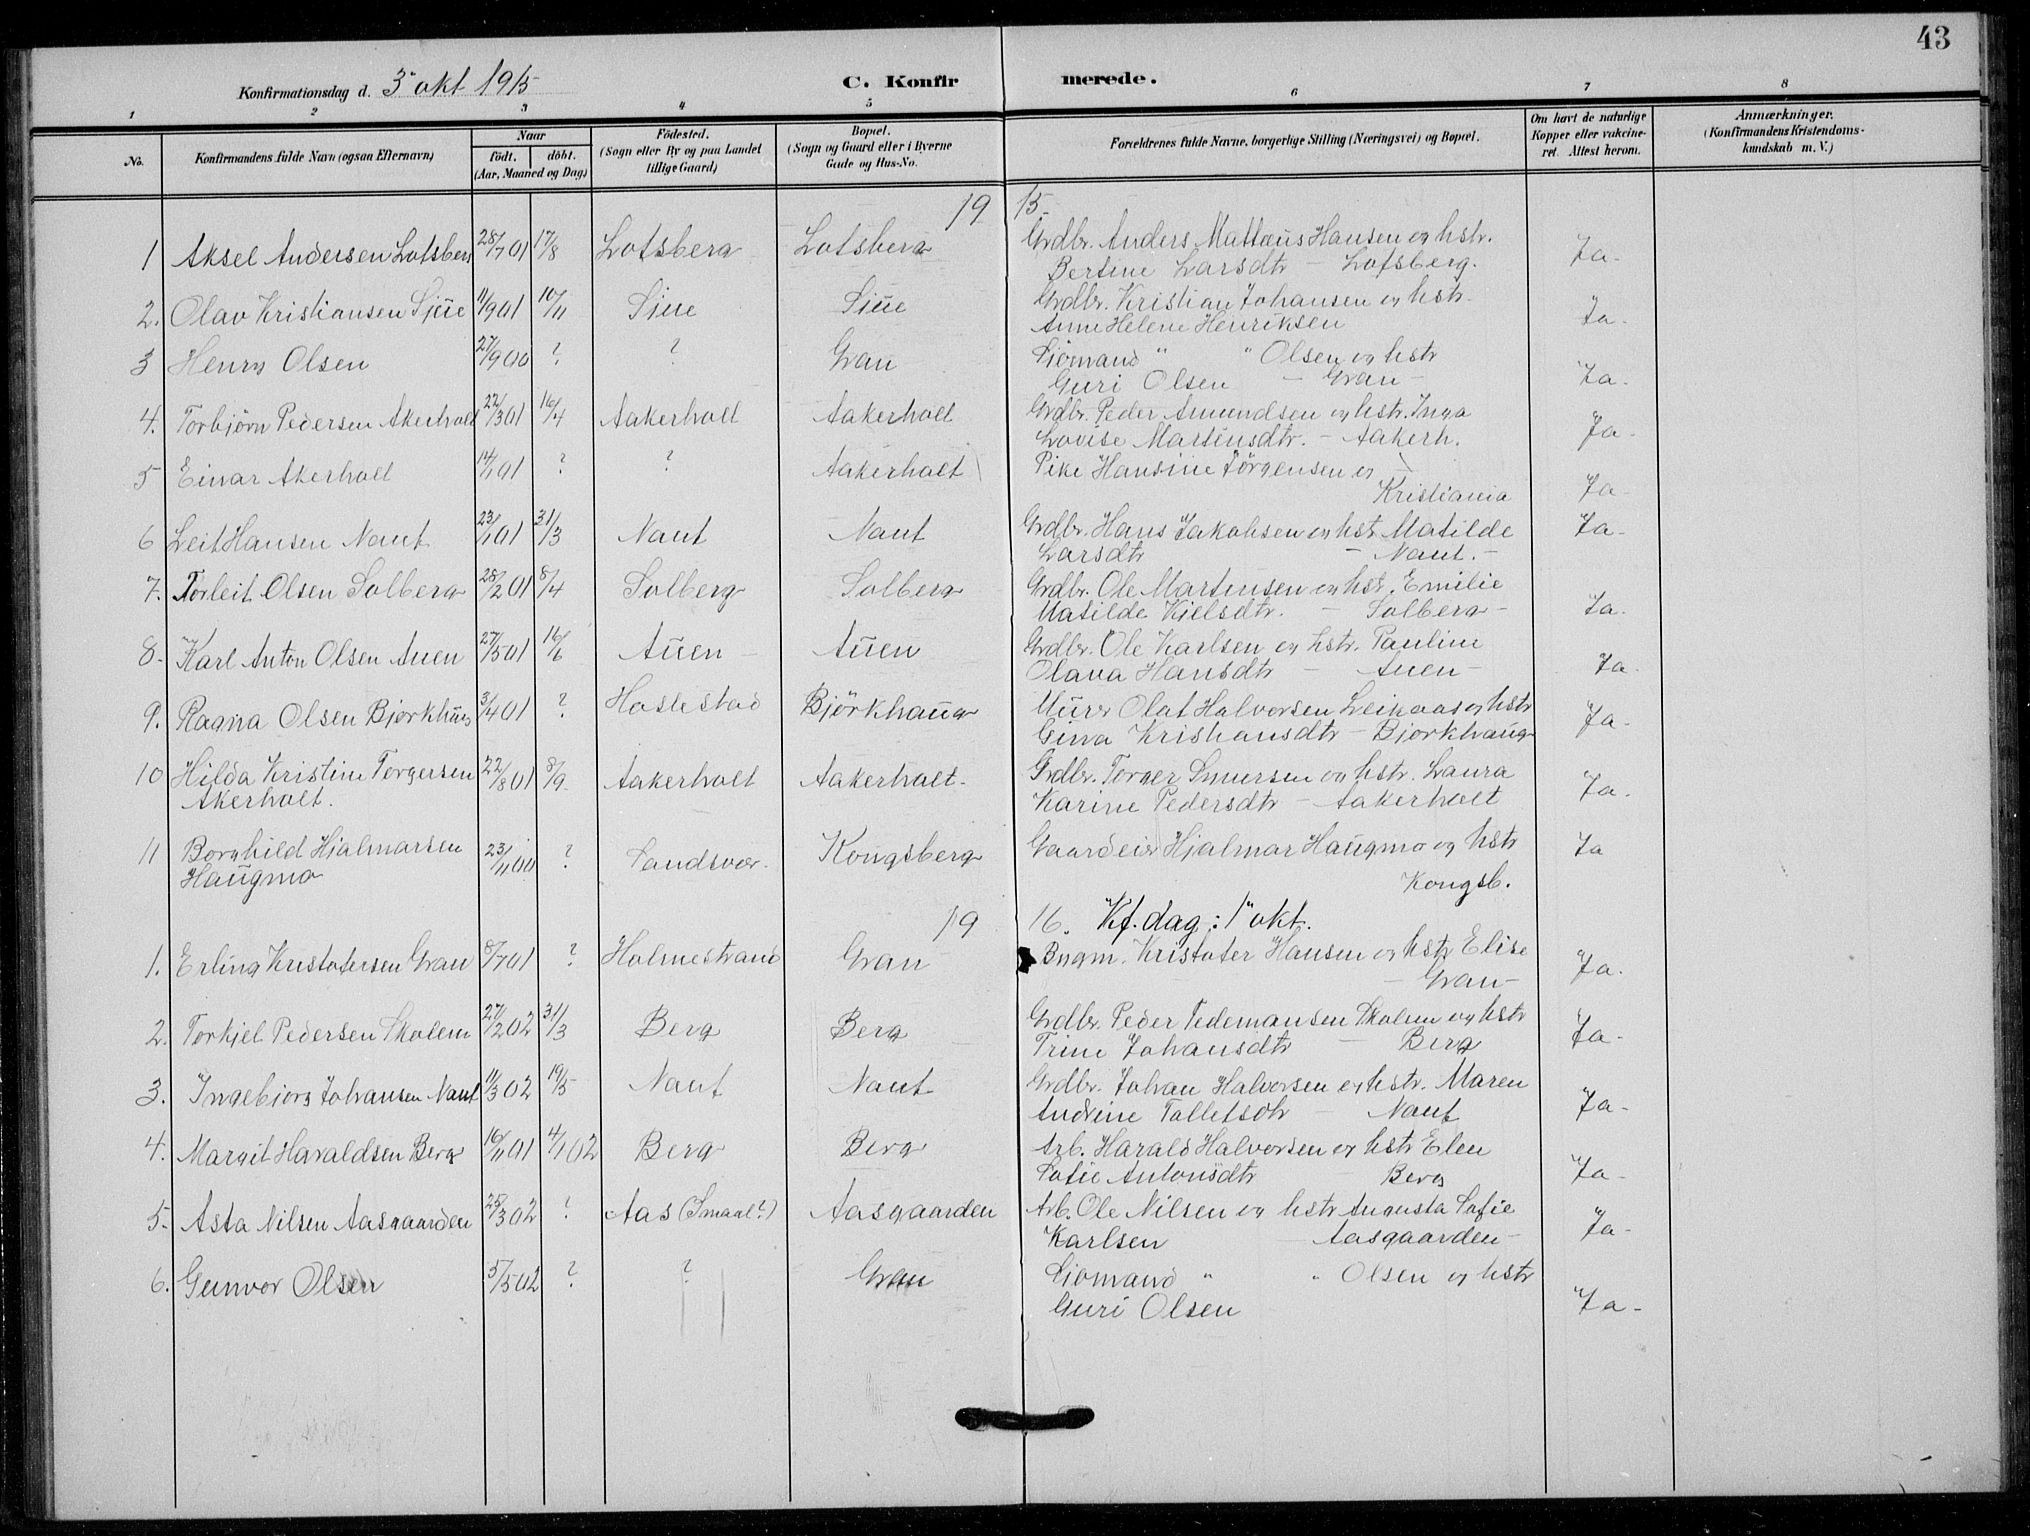 43
Konfirmationsdag d. 3' okt 1915
C. Konfirmerede.
1 2 3 4 5 6 7 8
No. Konfirmandens fulde Navn (ogsaa Efternavn) Naar født. døbt. (Aar, Maaned og Dag) Födested. (Sogn eller By og paa Landet tillige Gaard) Bopæl. (Sogn og Gaard eller i Byerne Gade og Hus-No. Forældrenes fulde Navne, borgerlige Stilling (Næringsvei) og Bopæl. Om havt de naturlige Kopper eller vakcineret. Attest herom. Anmærkninger. (Konfirmandens Kristendomskundskab m. V.)
1915.
1 Aksel Andersen Lofsberg 28/7 01 17/8 Lofsberg Lofsberg Grdbr. Anders Mattæus Hansen og hstr. Ja-
Bertine Larsdtr - Lofsberg.
2. Olav Kristiansen Sjue 11/9 01 10/11 Sjue Sjue Grdbr. Kristian Johansen og hstr. Ja-
Anne Helene Henriksen
3 Henry Olsen 27/9 00 ? ? Gran Sjømand " " Olsen og hstr Ja-
Guri Olsen - Gran -
4. Torbjørn Pedersen Akerholt 22/3 01 16/4 Aakerholt Aakerholt Grdbr. Peder Amundsen og hstr. Inga Ja-
Lovise Martinsdtr. - Aakerh.
5 Einar Akerholt 14/1 01 ? ? Aakerholt Pike Hansine Jørgensen og - Ja-
Kristiania
6 Leif Hansen Nauf 23/1 01 31/3 Nauf Nauf Grdbr. Hans Jakobsen og hstr Matilde Ja-
Larsdtr - Nauf. -
7. Torleif Olsen Solberg 28/2 01 8/4 Solberg Solberg Grdbr. Ole Martinsen og hstr. Emilie Ja-
Matilde Kjelsdtr. - Solberg -
8. Karl Anton Olsen Auen 27/5 01 16/6 Auen Auen Grdbr. Ole Karlsen og hstr. Pauline Ja-
Olava Hansdtr - Auen -
9. Ragna Olsen Bjørkhaug 3/4 01 ? Haslestad Bjørkhaug Murer Olaf Halvorsen Leikaas og hstr Ja-
Gina Kristiansdtr - Bjørkhaug
10 Hilda Kristine Torgersen 22/8 01 8/9. Aakerholt Aakerholt. Grdbr. Torger og hstr. Laura Ja.
Akerholt. Karine Pedersdtr - Aakerholt
11 Borghild Hjalmarsen 23/11 00 ? Sandsvær. Kongsberg Gaardeier Hjalmar Haugmo og hstr Ja
Haugmo Kongsb.
1916. Kf. dag: 1' okt.
1. Erling Kristofersen Gran 8/7 01 ? Holmestrand Gran Bngm. Kristofer Hansen og hstr Elise Ja.
- Gran -
2. Torkjel Pedersen Skolem 27/2 02 31/3 Berg Berg Grdbr. Peder Tidemansen Skolem og hstr Ja-
Trine Johansdtr - Berg
3. Ingebjørg Johansen Nauf 11/3 02 19/5 Nauf Nauf Grdbr. Johan Halvorsen og hstr. Maren Ja-
Andrine Tollefsdtr - Nauf
4. Margit Haraldsen Berg 16/11 01 4/1 02 Berg Berg Arb. Harald Halvorsen og hstr Elen Ja-
Sofie Antonsdtr Berg
5. Asta Nilsen Aasgaarden 25/3 02 ? Aas (Smaal?) Aasgaarden Arb. Ole Nilsen og hstr Augusta Sofie Ja-
Karlsen - Aasgaarden -
6. Gunvor Olsen 5/5 02 ? ? Gran Sjømand " " Olsen og hstr Ja-
Guri Olsen